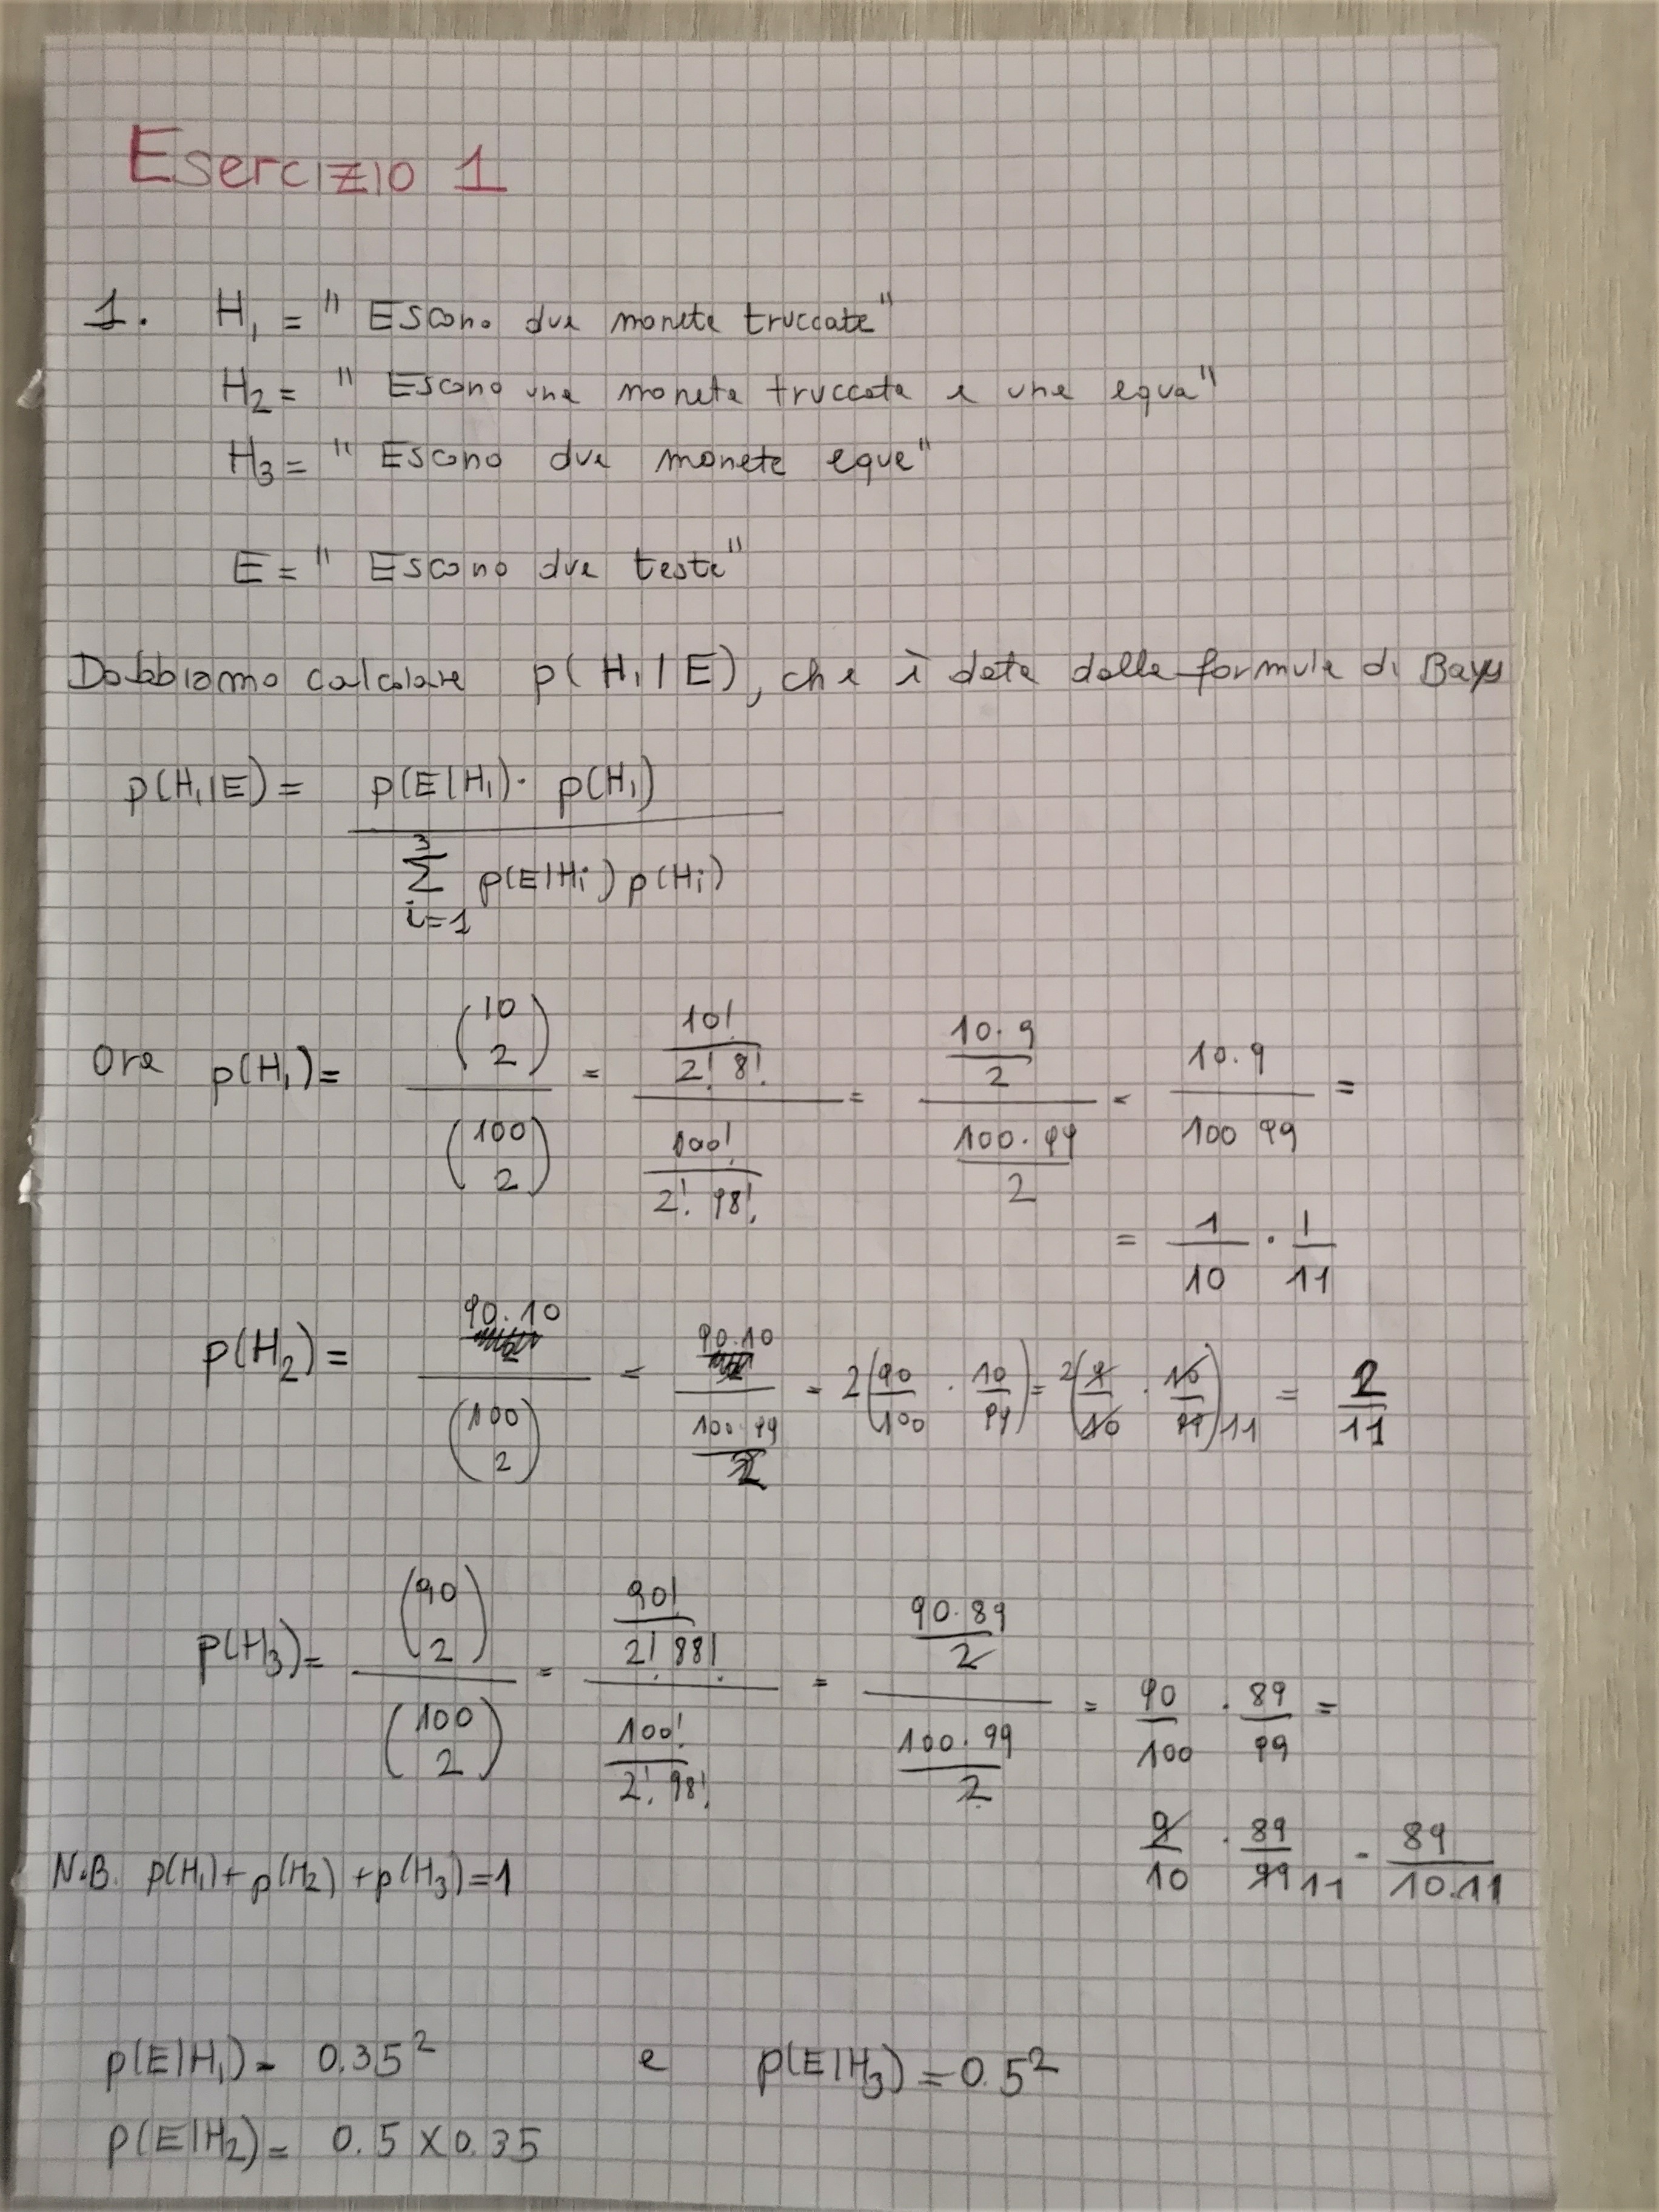 Esercizio 1
1. H₁ = " Escono due monete truccate"
H₂ = " Escono una moneta truccata e una equa"
H₃ = " Escono due monete eque"
E = " Escono due teste"
Dobbiamo calcolare p(H₁|E), che è data dalla formula di Bayes
p(H₁|E) = p(E|H₁) · p(H₁) / ∑_{i=1}^{3} p(E|Hi) p(Hi)
Ora p(H₁) = (10 2) / (100 2) = (10! / 2! 8!) / (100! / 2! 98!) = (10·9 / 2) / (100·99 / 2) = 10·9 / 100 99 =
= 1/10 · 1/11
p(H₂) = 90·10 / (100 2) = 90·10 / (100·99 / 2) = 2(90/100 · 10/99) = 2(9/10 · 10/99) 11 = 2/11
p(H₃) = (90 2) / (100 2) = (90! / 2! 88!) / (100! / 2! 98!) = (90·89 / 2) / (100·99 / 2) = 90/100 · 89/99 =
9/10 · 89/99 11 = 89 / 10.11
N.B. p(H₁) + p(H₂) + p(H₃) = 1
p(E|H₁) = 0.35² e p(E|H₃) = 0.5²
p(E|H₂) = 0.5 × 0.35